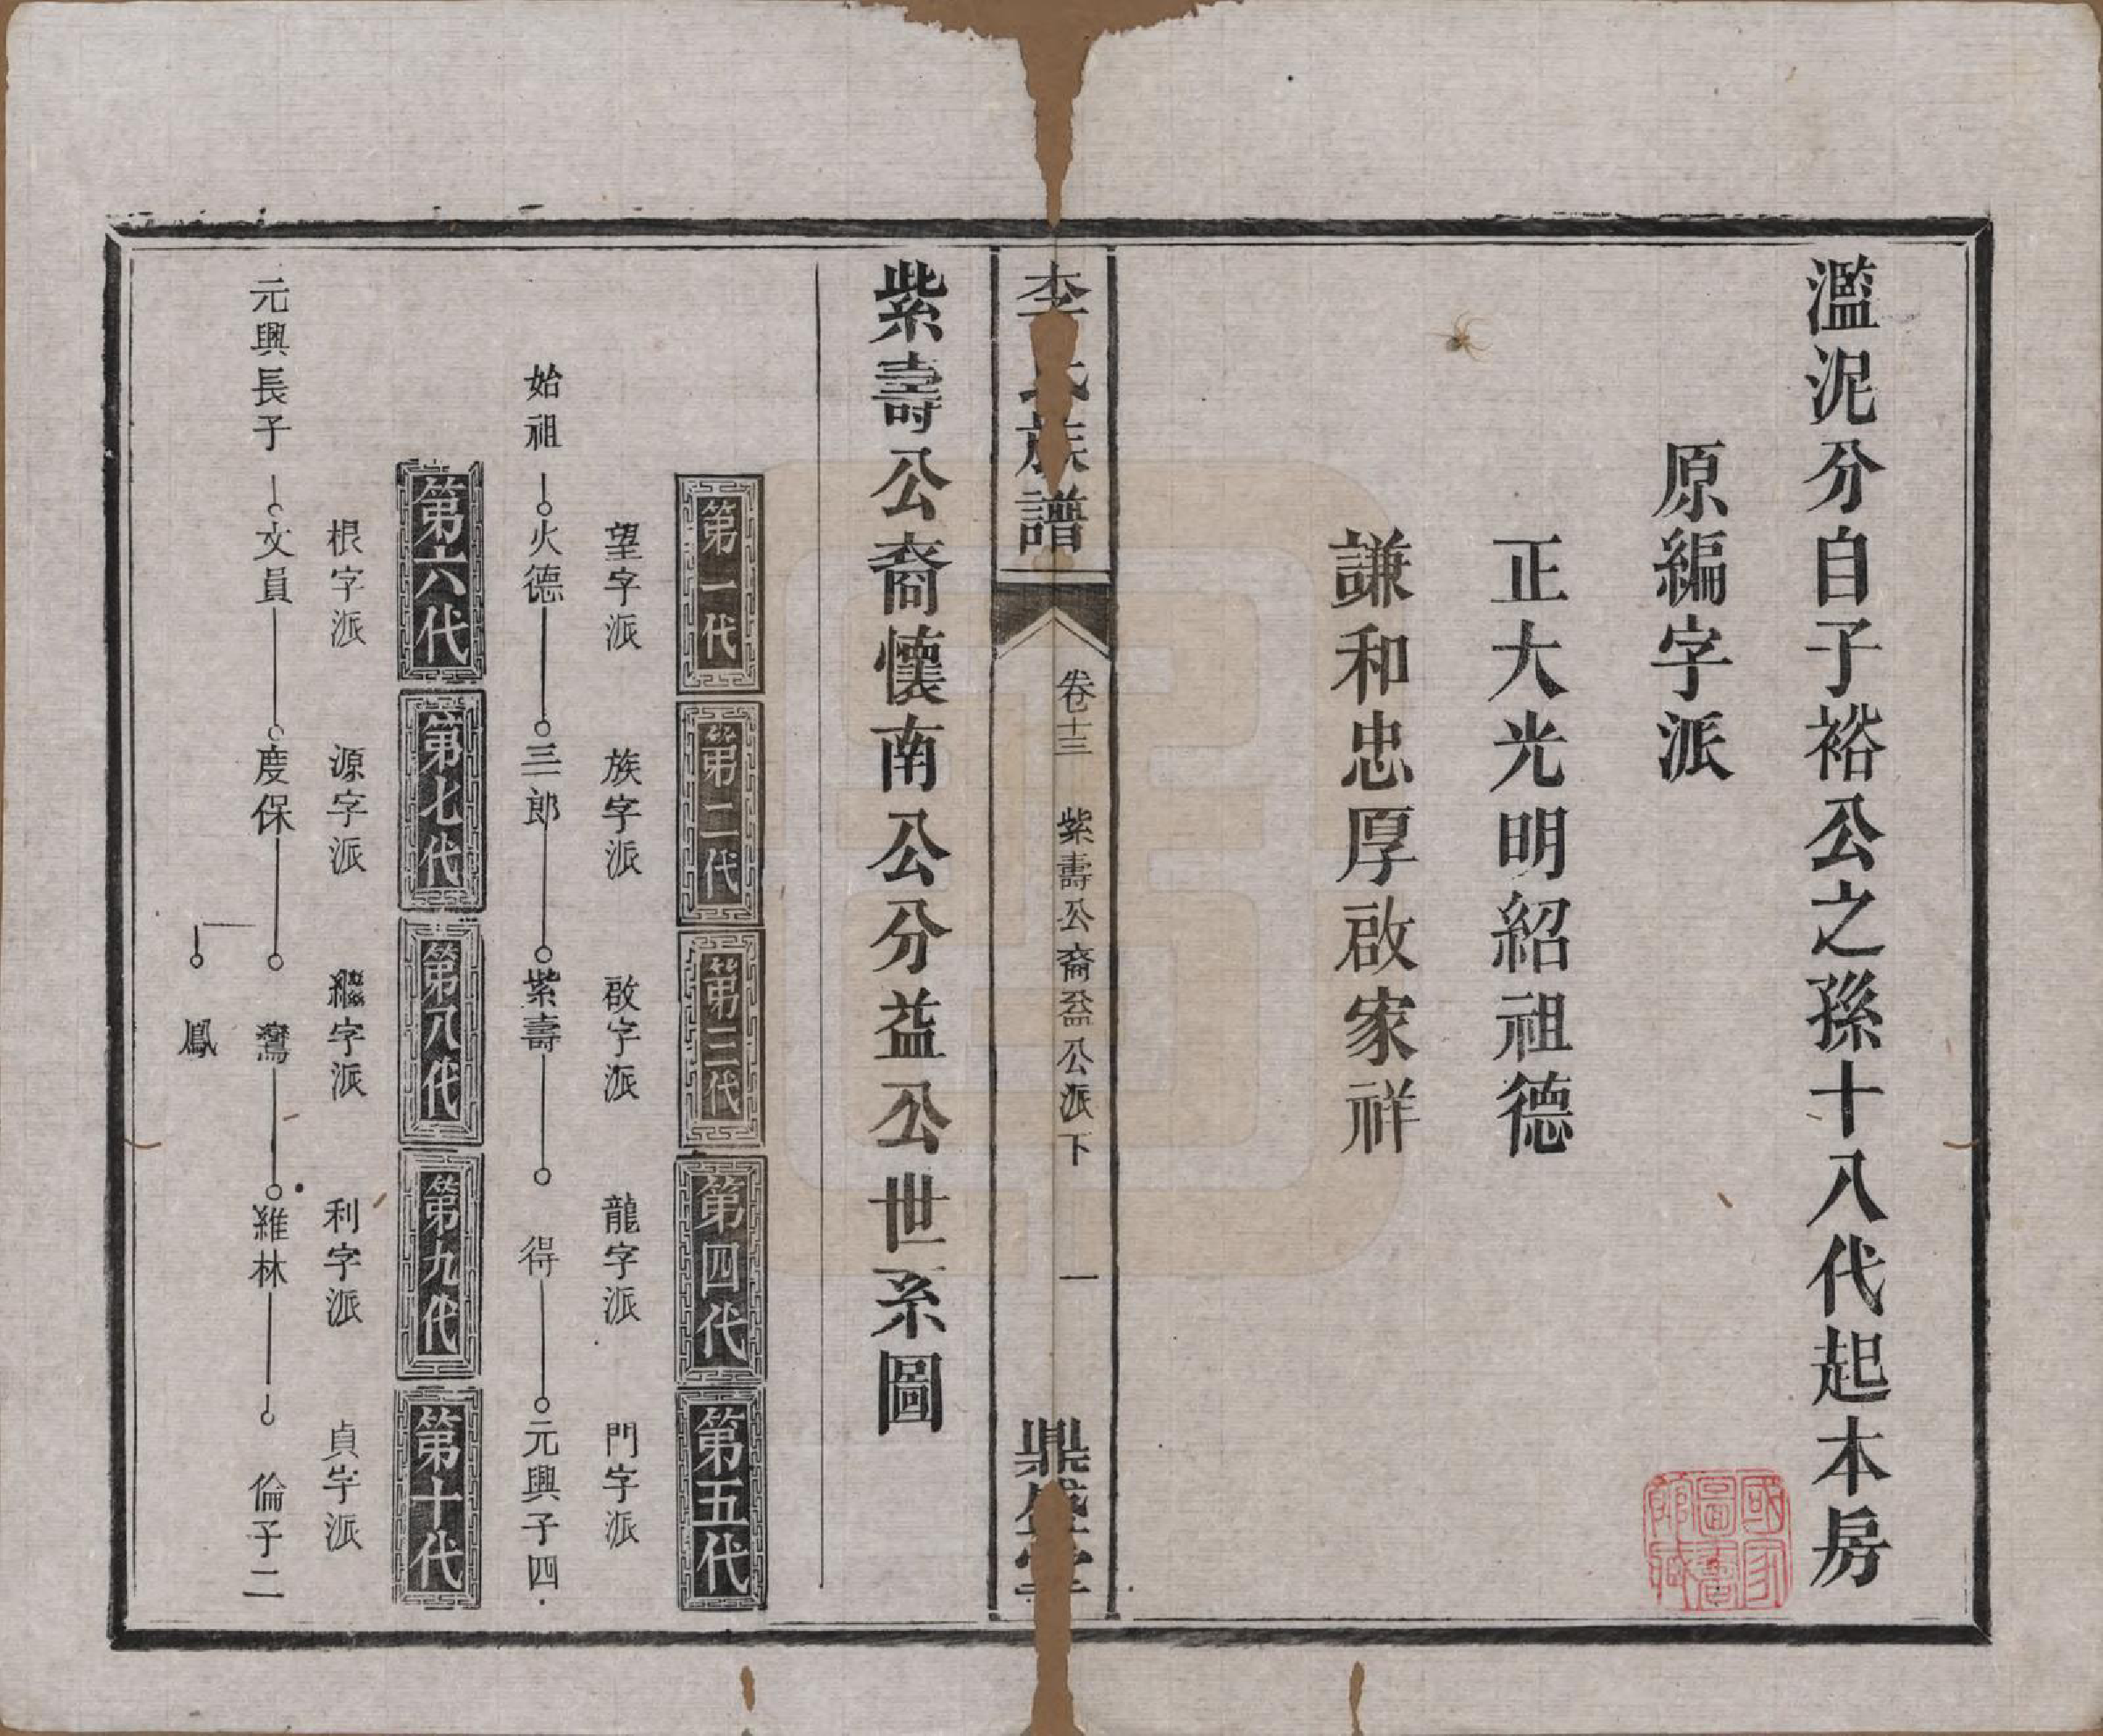 濫泥分自子裕公之孫十八代起本房
原編字派
正大光明紹祖德
謙和忠厚啟家祥
李氏族譜
卷十三 紫壽公裔益公派下 一
鼎盛堂
紫壽公裔懷南公分益公世系圖
第一代 第二代 第三代 第四代 第五代
望字派 族字派 啟字派 龍字派 門字派
始祖 火德 三郎 紫壽 得 元興子四
第六代 第七代 第八代 第九代 第十代
根字派 源字派 繼字派 利字派 貞字派
元興長子 文員 度保 鸞 維林 倫子二
鳳
國家圖書館藏